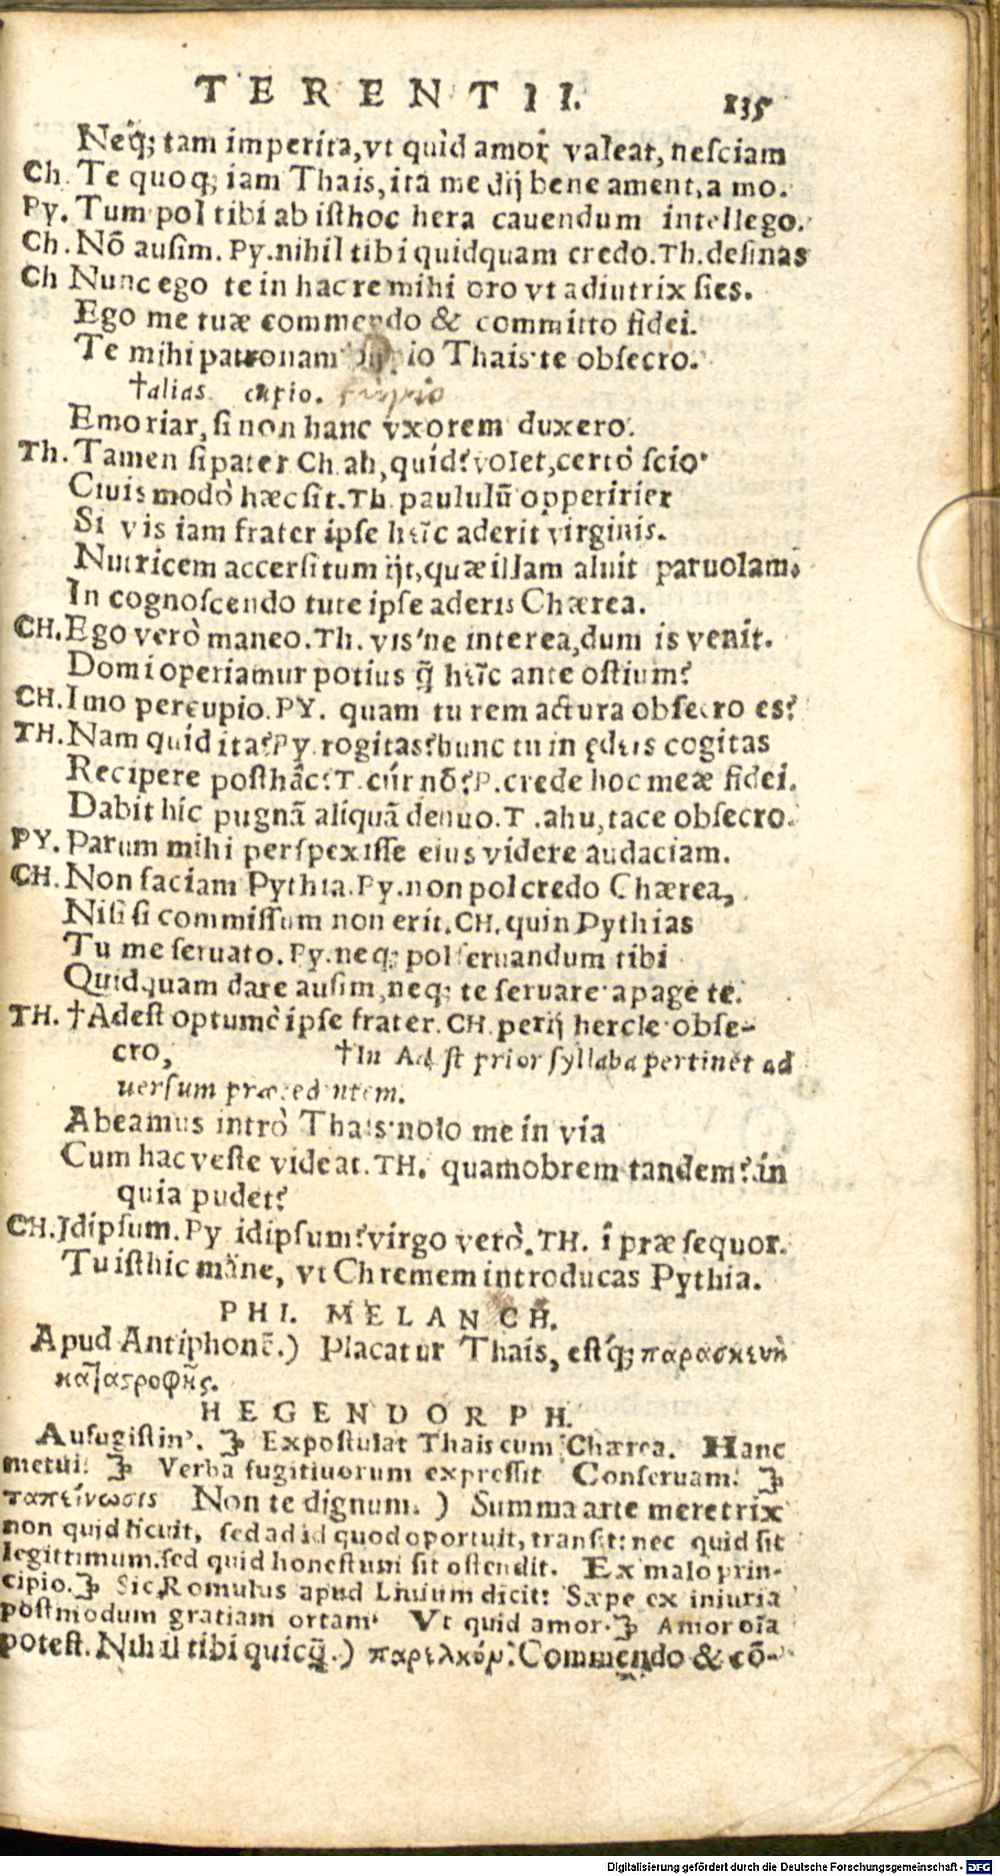 TERENTII. 135
Neq́; tam imperita, vt quìd amor valeat, nesciam
Ch. Te quoq; iam Thais, ita me dij bene ament, a mo.
Py. Tum pol tibi ab isthoc hera cauendum intellego.
Ch. Nō ausim. Py. nihil tibi quidquam credo. Th. desinas
Ch Nunc ego te in hac re mihi oro vt adiutrix sies.
Ego me tuæ commendo & committo fidei.
Te mihi patronam io Thais te obsecro.
†alias. cupio. cupio
Emoriar, si non hanc vxorem duxero.
Th. Tamen si pater Ch. ah, quid? volet, certò scio
Ciuis modò hæc sit. Th. paululū opperirier
Si vis iam frater ipse hīc aderit virginis.
Nutricem accersitum ijt, quæ illam aluit paruolam.
In cognoscendo tute ipse aderis Chærea.
CH. Ego verò maneo. Th. vis'ne interea, dum is venit.
Domi operiamur potius q̄ hīc ante ostium?
CH. Imo percupio. PY. quam tu rem actura obsecro es?
TH. Nam quid ita? Py. rogitas? hunc tu in ędeis cogitas
Recipere posthâc? T. cúr nō? P. crede hoc meæ fidei.
Dabit hic pugnā aliquā denuo. T. ahu, tace obsecro.
PY. Parum mihi perspexisse eius videre audaciam.
CH. Non faciam Pythia. Py. non pol credo Chærea,
Nisi si commissum non erit. CH. quin Pythias
Tu me seruato. Py. neq; pol seruandum tibi
Quidquam dare ausim, neq; te seruare apage te.
TH. †Adest optumè ipse frater. CH. perij hercle obse-
cro, †In Adest prior syllaba pertinet ad
uersum præcedentem.
Abeamus intrò Thais nolo me in via
Cum hac veste videat. TH. quamobrem tandem? in
quia pudet?
CH. Idipsum. Py idipsum? virgo verò. TH. i præ sequor.
Tu isthic mane, vt Chremem introducas Pythia.
PHI. MELANCH.
Apud Antiphonē.) Placatur Thais, estq́; παρασκευὴ
καταστροφῆς.
HEGENDORPH.
Aufugistin'. ) Expostulat Thais cum Chærea. Hanc
metui. ) Verba fugitiuorum expressit Conseruam. )
ταπείνωσις Non te dignum. ) Summa arte meretrix
non quid licuit, sed ad id quod oportuit, transit: nec quid sit
legittimum. sed quid honestum sit ostendit. Ex malo prin-
cipio. ) Sic Romulus apud Liuium dicit: Sæpe ex iniuria
postmodum gratiam ortam Vt quid amor. ) Amor oīa
potest. Nihil tibi quicq̄.) παρέλκον. Commendo & cō-
Digitalisierung gefördert durch die Deutsche Forschungsgemeinschaft - DFG